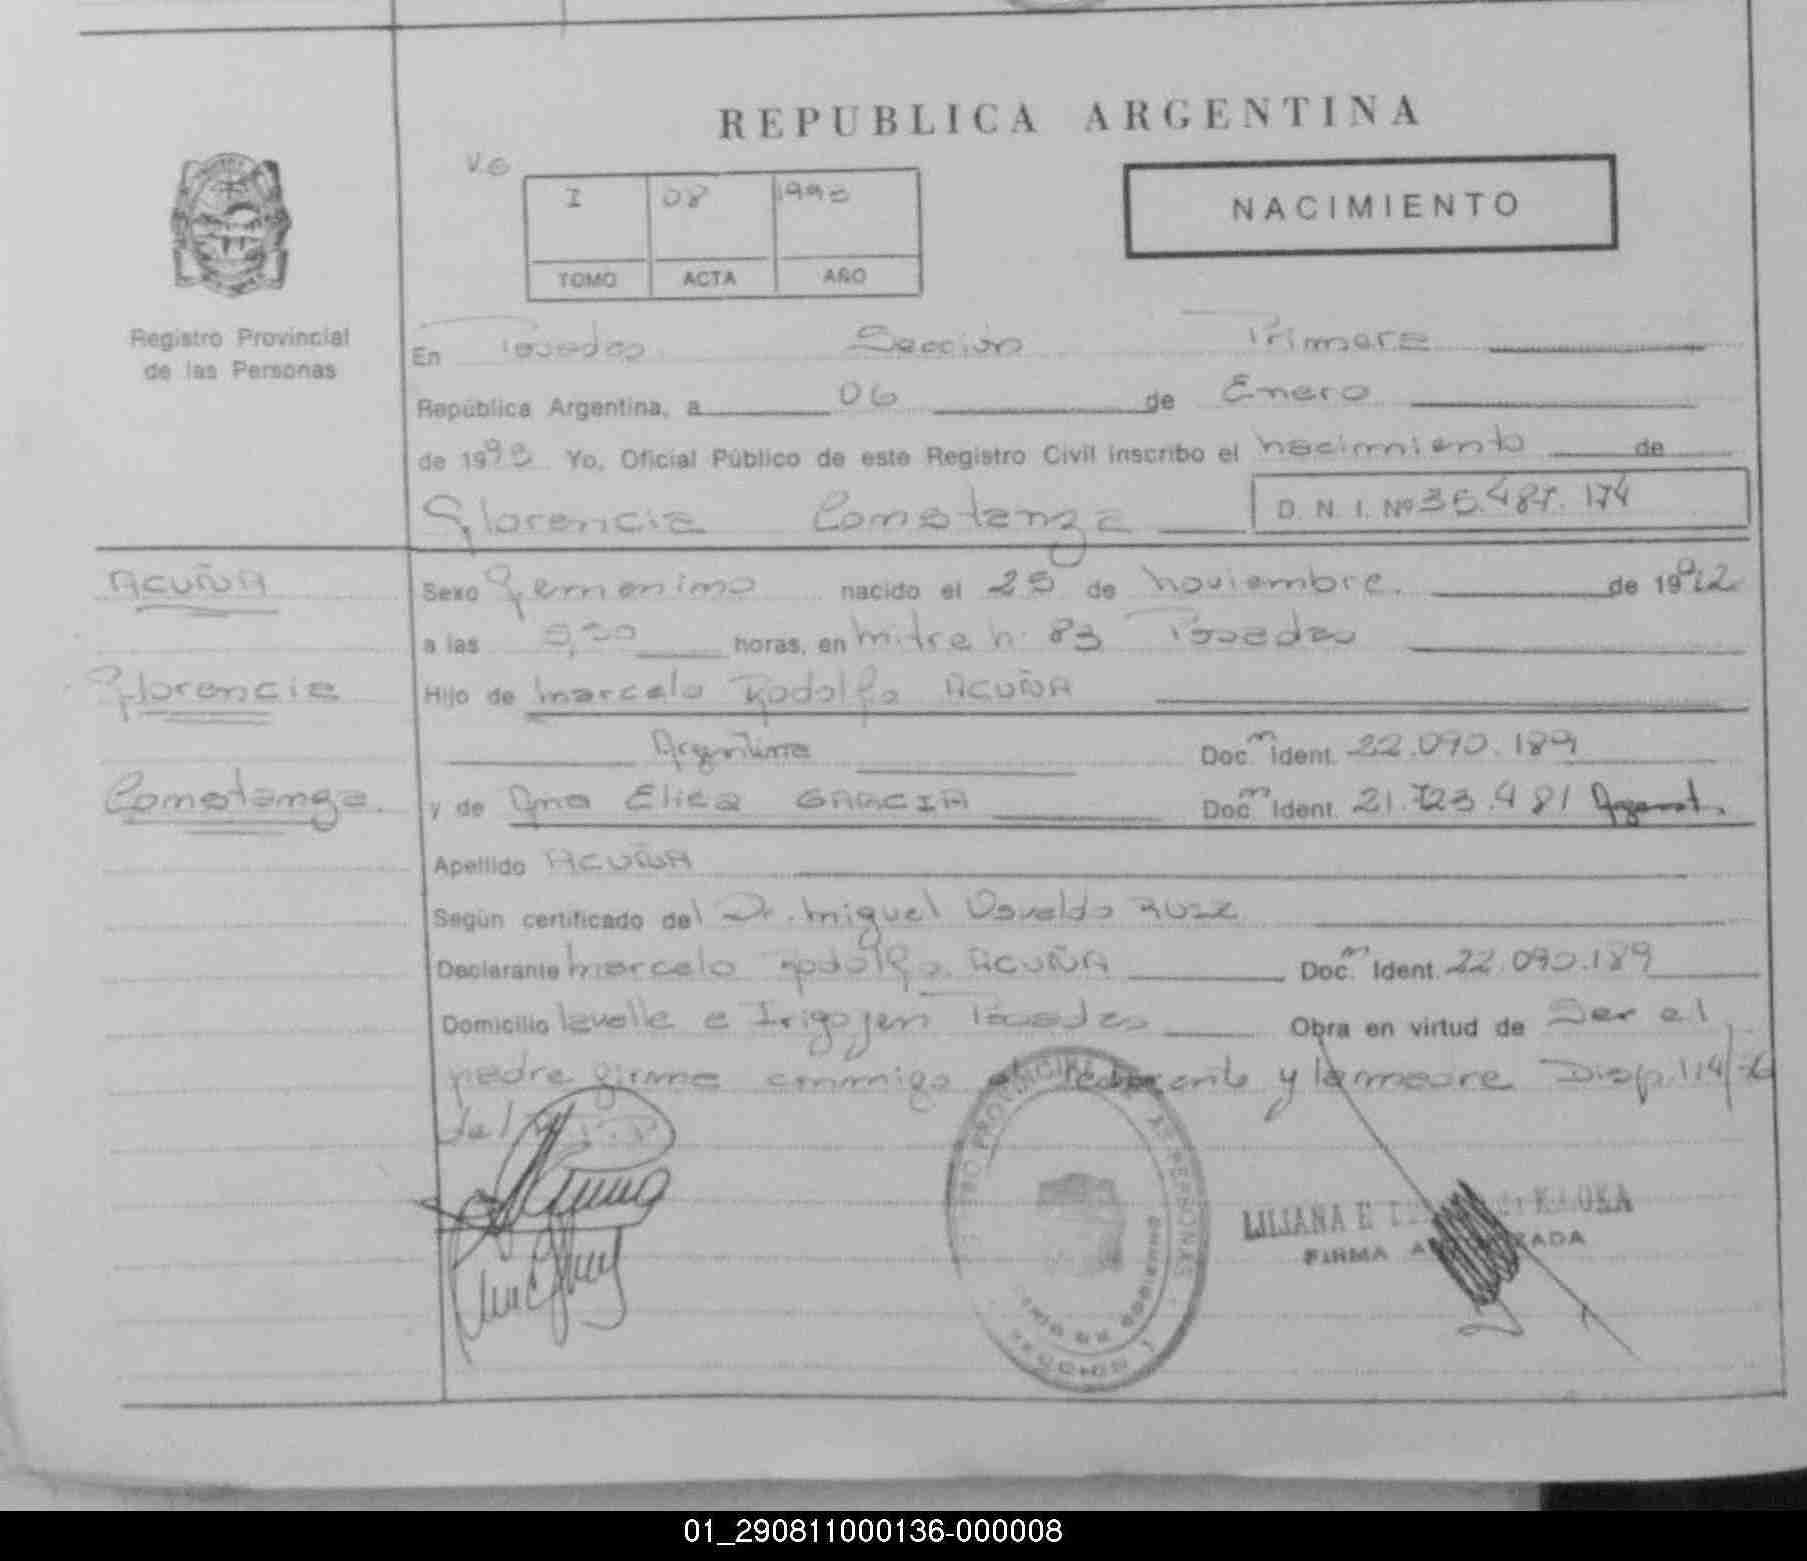 REPUBLICA ARGENTINA
V.6
I 08 1993
TOMO ACTA AÑO
NACIMIENTO
Registro Provincial
de las Personas
En Posadas Sección Primera
República Argentina, a 06 de Enero
de 1993 Yo, Oficial Público de este Registro Civil inscribo el nacimiento de
Florencia Constanza D. N. I. Nº 36.487.174
ACUÑA
Florencia
Constanza.
Sexo Femenino nacido el 25 de noviembre. de 1992
a las horas, en mitre n. 83 Posadas
Hijo de Marcelo Rodolfo ACUÑA
Argentina Doc. Ident. 22.090.189
y de Ana Elisa GARCIA Doc. Ident. 21.723.481 Argent.
Apellido ACUÑA
Según certificado del Dr. Miguel Osvaldo RUIZ
Declarante Marcelo Rodolfo ACUÑA Doc. Ident. 22.090.189
Domicilio lavalle e Irigoyen Posadas Obra en virtud de Ser el
padre firma conmigo el declarante y la madre Disp. 114/
del
LILIANA E
FIRMA AUTORIZADA
01_290811000136-000008